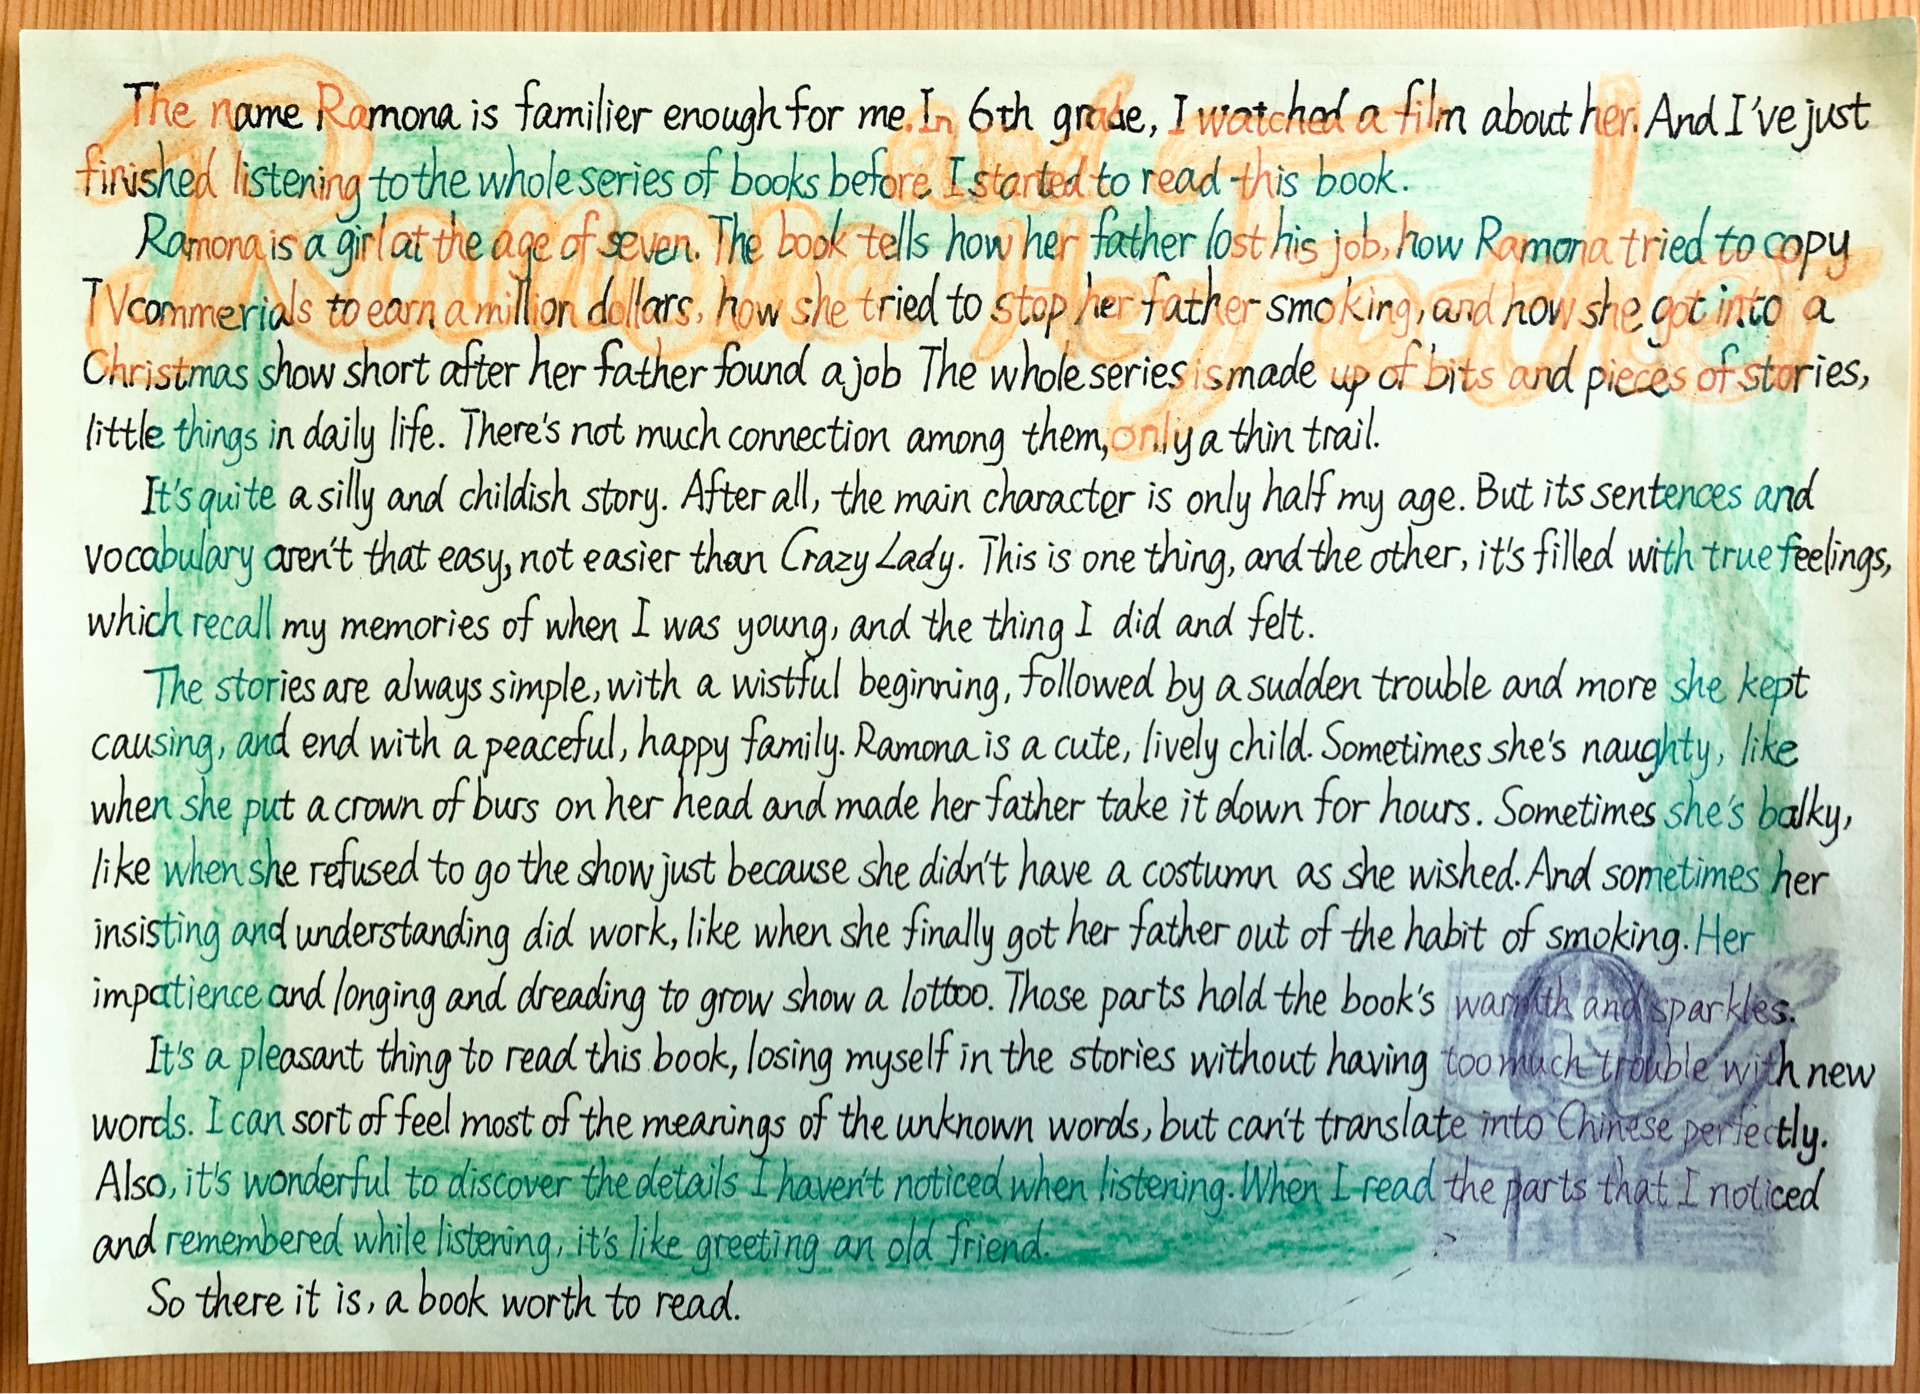 The name Ramona is familier enough for me. In 6th grade, I watched a film about her. And I've just
finished listening to the whole series of books before I started to read this book.
Ramona is a girl at the age of seven. The book tells how her father lost his job, how Ramona tried to copy
TV commerials to earn a million dollars, how she tried to stop her father smoking, and how she got into a
Christmas show short after her father found a job The whole series is made up of bits and pieces of stories,
little things in daily life. There's not much connection among them, only a thin trail.
It's quite a silly and childish story. After all, the main character is only half my age. But its sentences and
vocabulary aren't that easy, not easier than Crazy Lady. This is one thing, and the other, it's filled with true feelings,
which recall my memories of when I was young, and the thing I did and felt.
The stories are always simple, with a wistful beginning, followed by a sudden trouble and more she kept
causing, and end with a peaceful, happy family. Ramona is a cute, lively child. Sometimes she's naughty, like
when she put a crown of burs on her head and made her father take it down for hours. Sometimes she's balky,
like when she refused to go the show just because she didn't have a costumn as she wished. And sometimes her
insisting and understanding did work, like when she finally got her father out of the habit of smoking. Her
impatience and longing and dreading to grow show a lot too. Those parts hold the book's warmth and sparkles.
It's a pleasant thing to read this book, losing myself in the stories without having too much trouble with new
words. I can sort of feel most of the meanings of the unknown words, but can't translate into Chinese perfectly.
Also, it's wonderful to discover the details I haven't noticed when listening. When I read the parts that I noticed
and remembered while listening, it's like greeting an old friend.
So there it is, a book worth to read.
Ramona and
Her Father